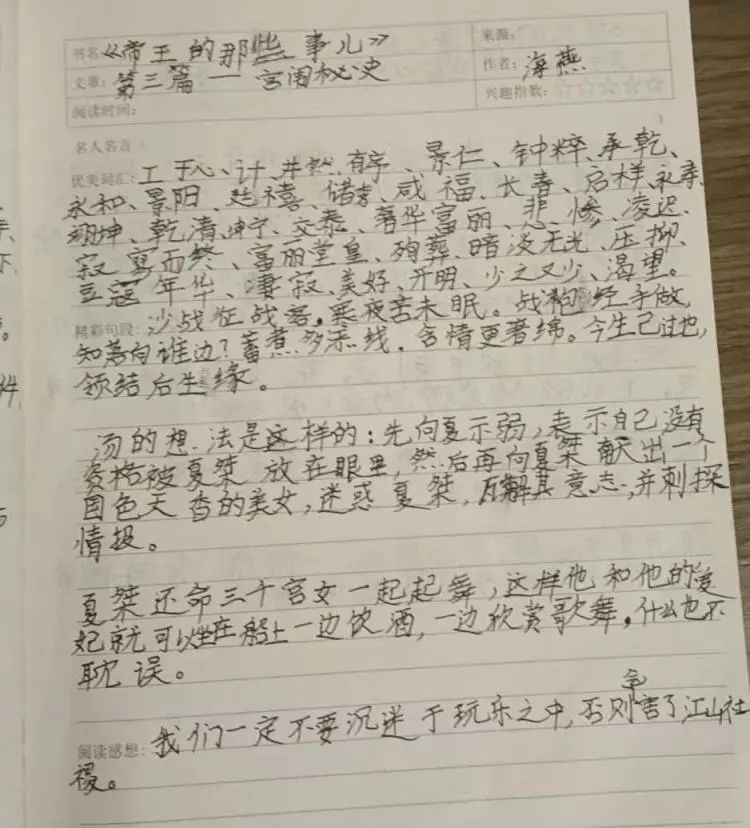 书名:《帝王的那些事儿》 来源:
文章:第三篇一宫闱秘史 作者:海燕
阅读时间: 兴趣指数:☆☆☆☆☆
名人名言( )
优美词汇:工于心计、井然有序、景仁、钟粹、承乾、
永和、景阳、延禧、储秀、咸福、长春、启祥、永寿、
翊坤、乾清、坤宁、交泰、奢华富丽、悲惨、凌迟、
寂寞而终、富丽堂皇、殉葬、暗淡无光、压抑、
豆寇年华、凄寂、美好、开明、少之又少、渴望。
精彩句段:沙战征战客,寒夜苦未眠。战袍经手做,
知落向谁边?蓄意多添线,含情更著绵。今生已过也,
领结后生缘。
汤的想法是这样的:先向夏示弱,表示自己没有
资格被夏桀放在眼里,然后再向夏桀献出一个
国色天香的美女,迷惑夏桀,瓦解其意志,并刺探
情报。
夏桀还命三千宫女一起起舞,这样他和他的爱
妃就可以坐在船上一边饮酒,一边欣赏歌舞,什么也不
耽误。
阅读感想:我们一定不要沉迷于玩乐之中,否则会害了江山社
稷。